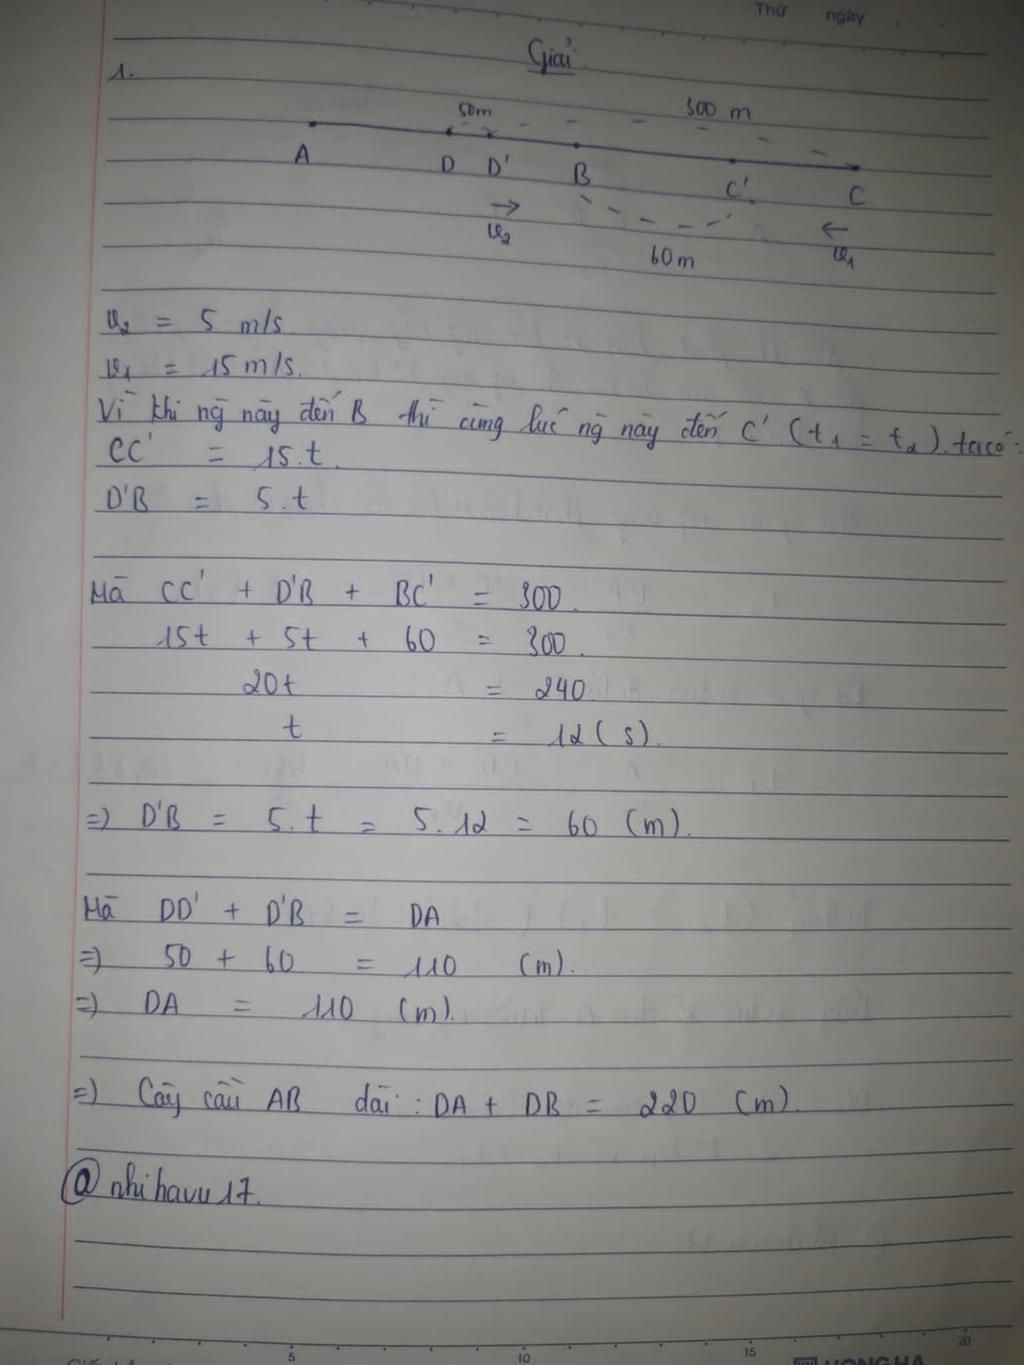 Thứ ngày
Giải
1.
50m 300 m
A D D' B C' C
v₂ 60m v₁
v₂ = 5 m/s
v₁ = 15 m/s.
Vì khi ng này đến B thì cùng lúc ng này đến C' (t₁ = t₂). ta có:
CC' = 15.t.
D'B = 5.t
Mà CC' + D'B + BC' = 300.
15t + 5t + 60 = 300.
20t = 240
t = 12 (s).
=> D'B = 5.t = 5.12 = 60 (m).
Mà DD' + D'B = DA
=> 50 + 60 = 110 (m).
=> DA = 110 (m).
=> Cây cầu AB dài: DA + DB = 220 (m).
@nhihavu17.
5 10 15 20
HONG HA